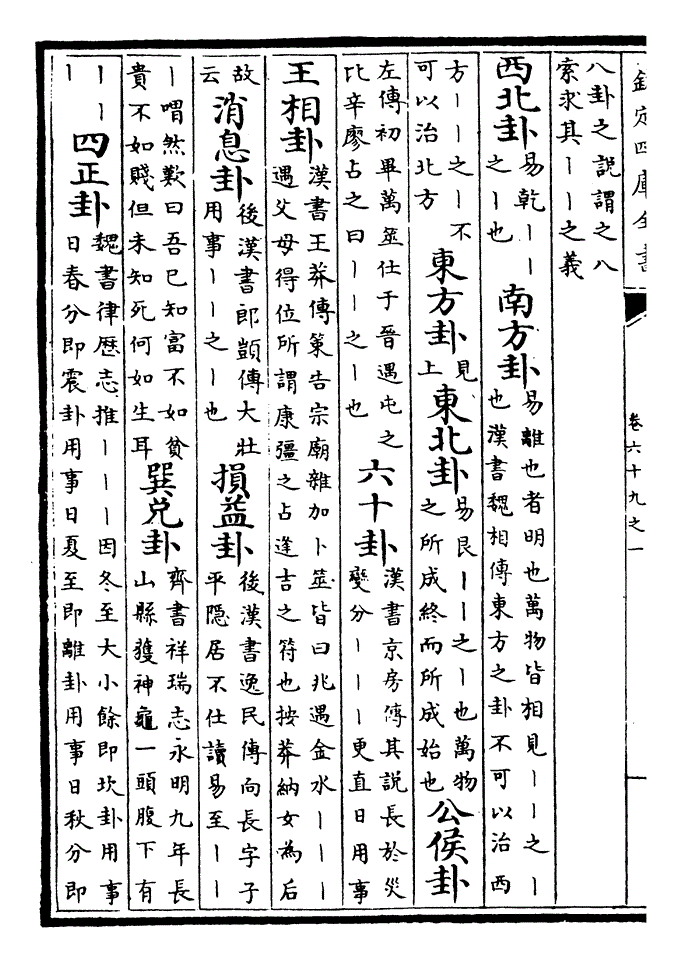 欽定四庫全書
卷六十九之一
八卦之説謂之八
索求其丨丨之義
西北卦
易乾丨丨
之丨也
南方卦
易離也者明也萬物皆相見丨丨之丨
也漢書魏相傳東方之卦不可以治西
方丨丨之丨不
可以治北方
東方卦
見
上
東北卦
易艮丨丨之丨也萬物
之所成終而所成始也
公侯卦
左傳初畢萬筮仕于晉遇屯之
比辛廖占之曰丨丨之丨也
六十卦
漢書京房傳其説長於災
變分丨丨丨更直日用事
王相卦
漢書王莽傳策告宗廟雜加卜筮皆曰兆遇金水丨丨丨
遇父母得位所謂康彊之占逢吉之符也按莽納女為后
故
云
消息卦
後漢書郎顗傳大壯
用事丨丨之丨也
損益卦
後漢書逸民傳向長字子
平隠居不仕讀易至丨丨
丨喟然歎曰吾已知富不如貧
貴不如賤但未知死何如生耳
巽兑卦
齊書祥瑞志永明九年長
山縣獲神龜一頭腹下有
丨丨
丨
四正卦
魏書律歴志推丨丨丨因冬至大小餘即坎卦用事
日春分即震卦用事日夏至即離卦用事日秋分即